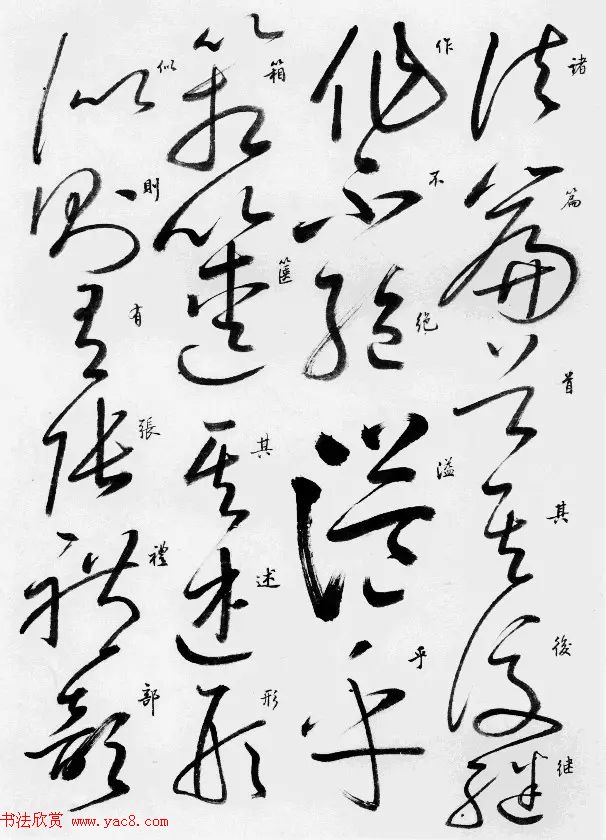 諸篇首其後继
作不绝溢乎
箱箧其述形
似則有張禮部
书法欣赏 www.yac8.com